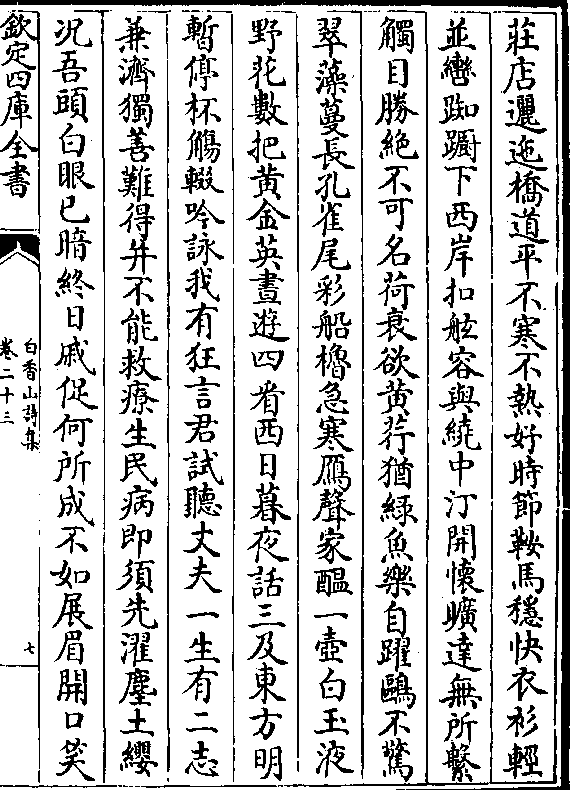 莊店邐迤橋道平不寒不熱好時節鞍馬穩快衣衫輕
並轡踟躕下西岸扣舷容與繞中汀開懷曠達無所繫
觸目勝絕不可名荷衰欲黄荇猶緑魚樂自躍鷗不驚
翠藻蔓長孔雀尾彩船櫓急寒鴈聲家醖一壺白玉液
野花數把黄金英晝遊四看西日暮夜話三及東方明
暫停杯觴輟吟詠我有狂言君試聽丈夫一生有二志
兼濟獨善難得并不能救療生民病即須先濯塵土纓
况吾頭白眼已暗終日戚促何所成不如展眉開口笑
欽定四庫全書
白香山詩集
卷二十三
七